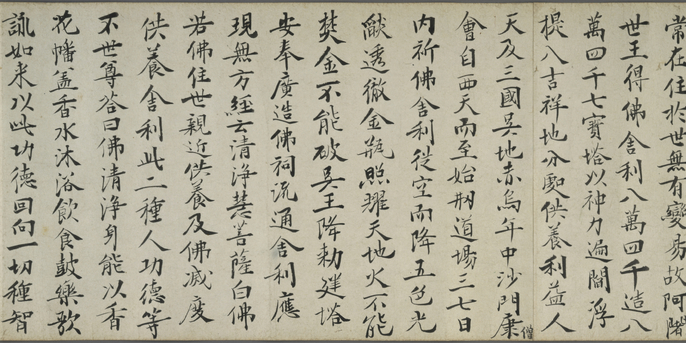 常在住於世無有變易故阿闍
世王得佛舍利八萬四千造八
萬四千七寶塔以神力遍閻浮
提八吉祥地分處供養利益人
天及三國吳地赤烏年中沙門康
僧
會自西天而至始刱道場三七日
内祈佛舍利從空而降五色光
燄透徹金瓶照耀天地火不能
焚金不能破吳王降勑建塔
安奉廣造佛祠流通舍利應
現無方經云清淨慧菩薩白佛
若佛住世親近供養及佛滅度
供養舍利此二種人功德等
不世尊答曰佛清淨身能以香
花幡盖香水沐浴飲食鼓樂歌
詠如来以此功德回向一切種智